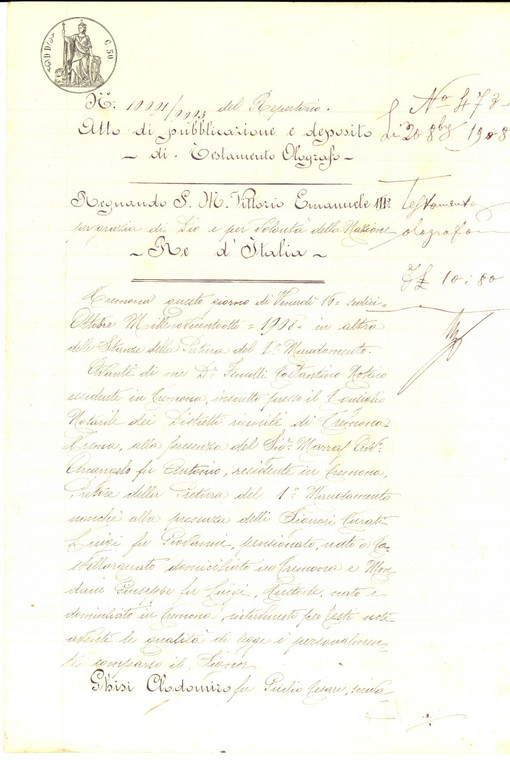 C. 50
N.° 1992/1993 del Repertorio.
Atto di pubblicazione e deposito
- di Testamento Olografo -
N° 478 -
Li 20 8bre 1908
Regnando S. M. Vittorio Emanuele III°
per grazia di Dio e per volontà della Nazione
- Re d'Italia -
Testamento
olografo
£ 10:80
Cremona questo giorno di Venerdì 16 = sedici
Ottobre Millenovecentotto = 1908 = in altra
delle Stanze della Pretura del 1° Mandamento.
Avanti di me Dr. Costantino Notaio
residente in Cremona, inscritto presso il Consiglio
Notarile dei Distretti riuniti di Cremona
Crema, alla presenza del Sigr. Marra Cav.
Arcangelo fu Antonio, residente in Cremona,
Pretore della Pretura del 1° Mandamento
nonché alla presenza delli Signori
Luigi fu Giovanni, pensionato, nato a Co-
domiciliato in Cremona e
Giuseppe fu Luigi, nato e
domiciliato in Cremona,
le qualità di legge è personalmen-
te comparso il Signor
Ghisi Clodomiro fu Giulio Cesare,